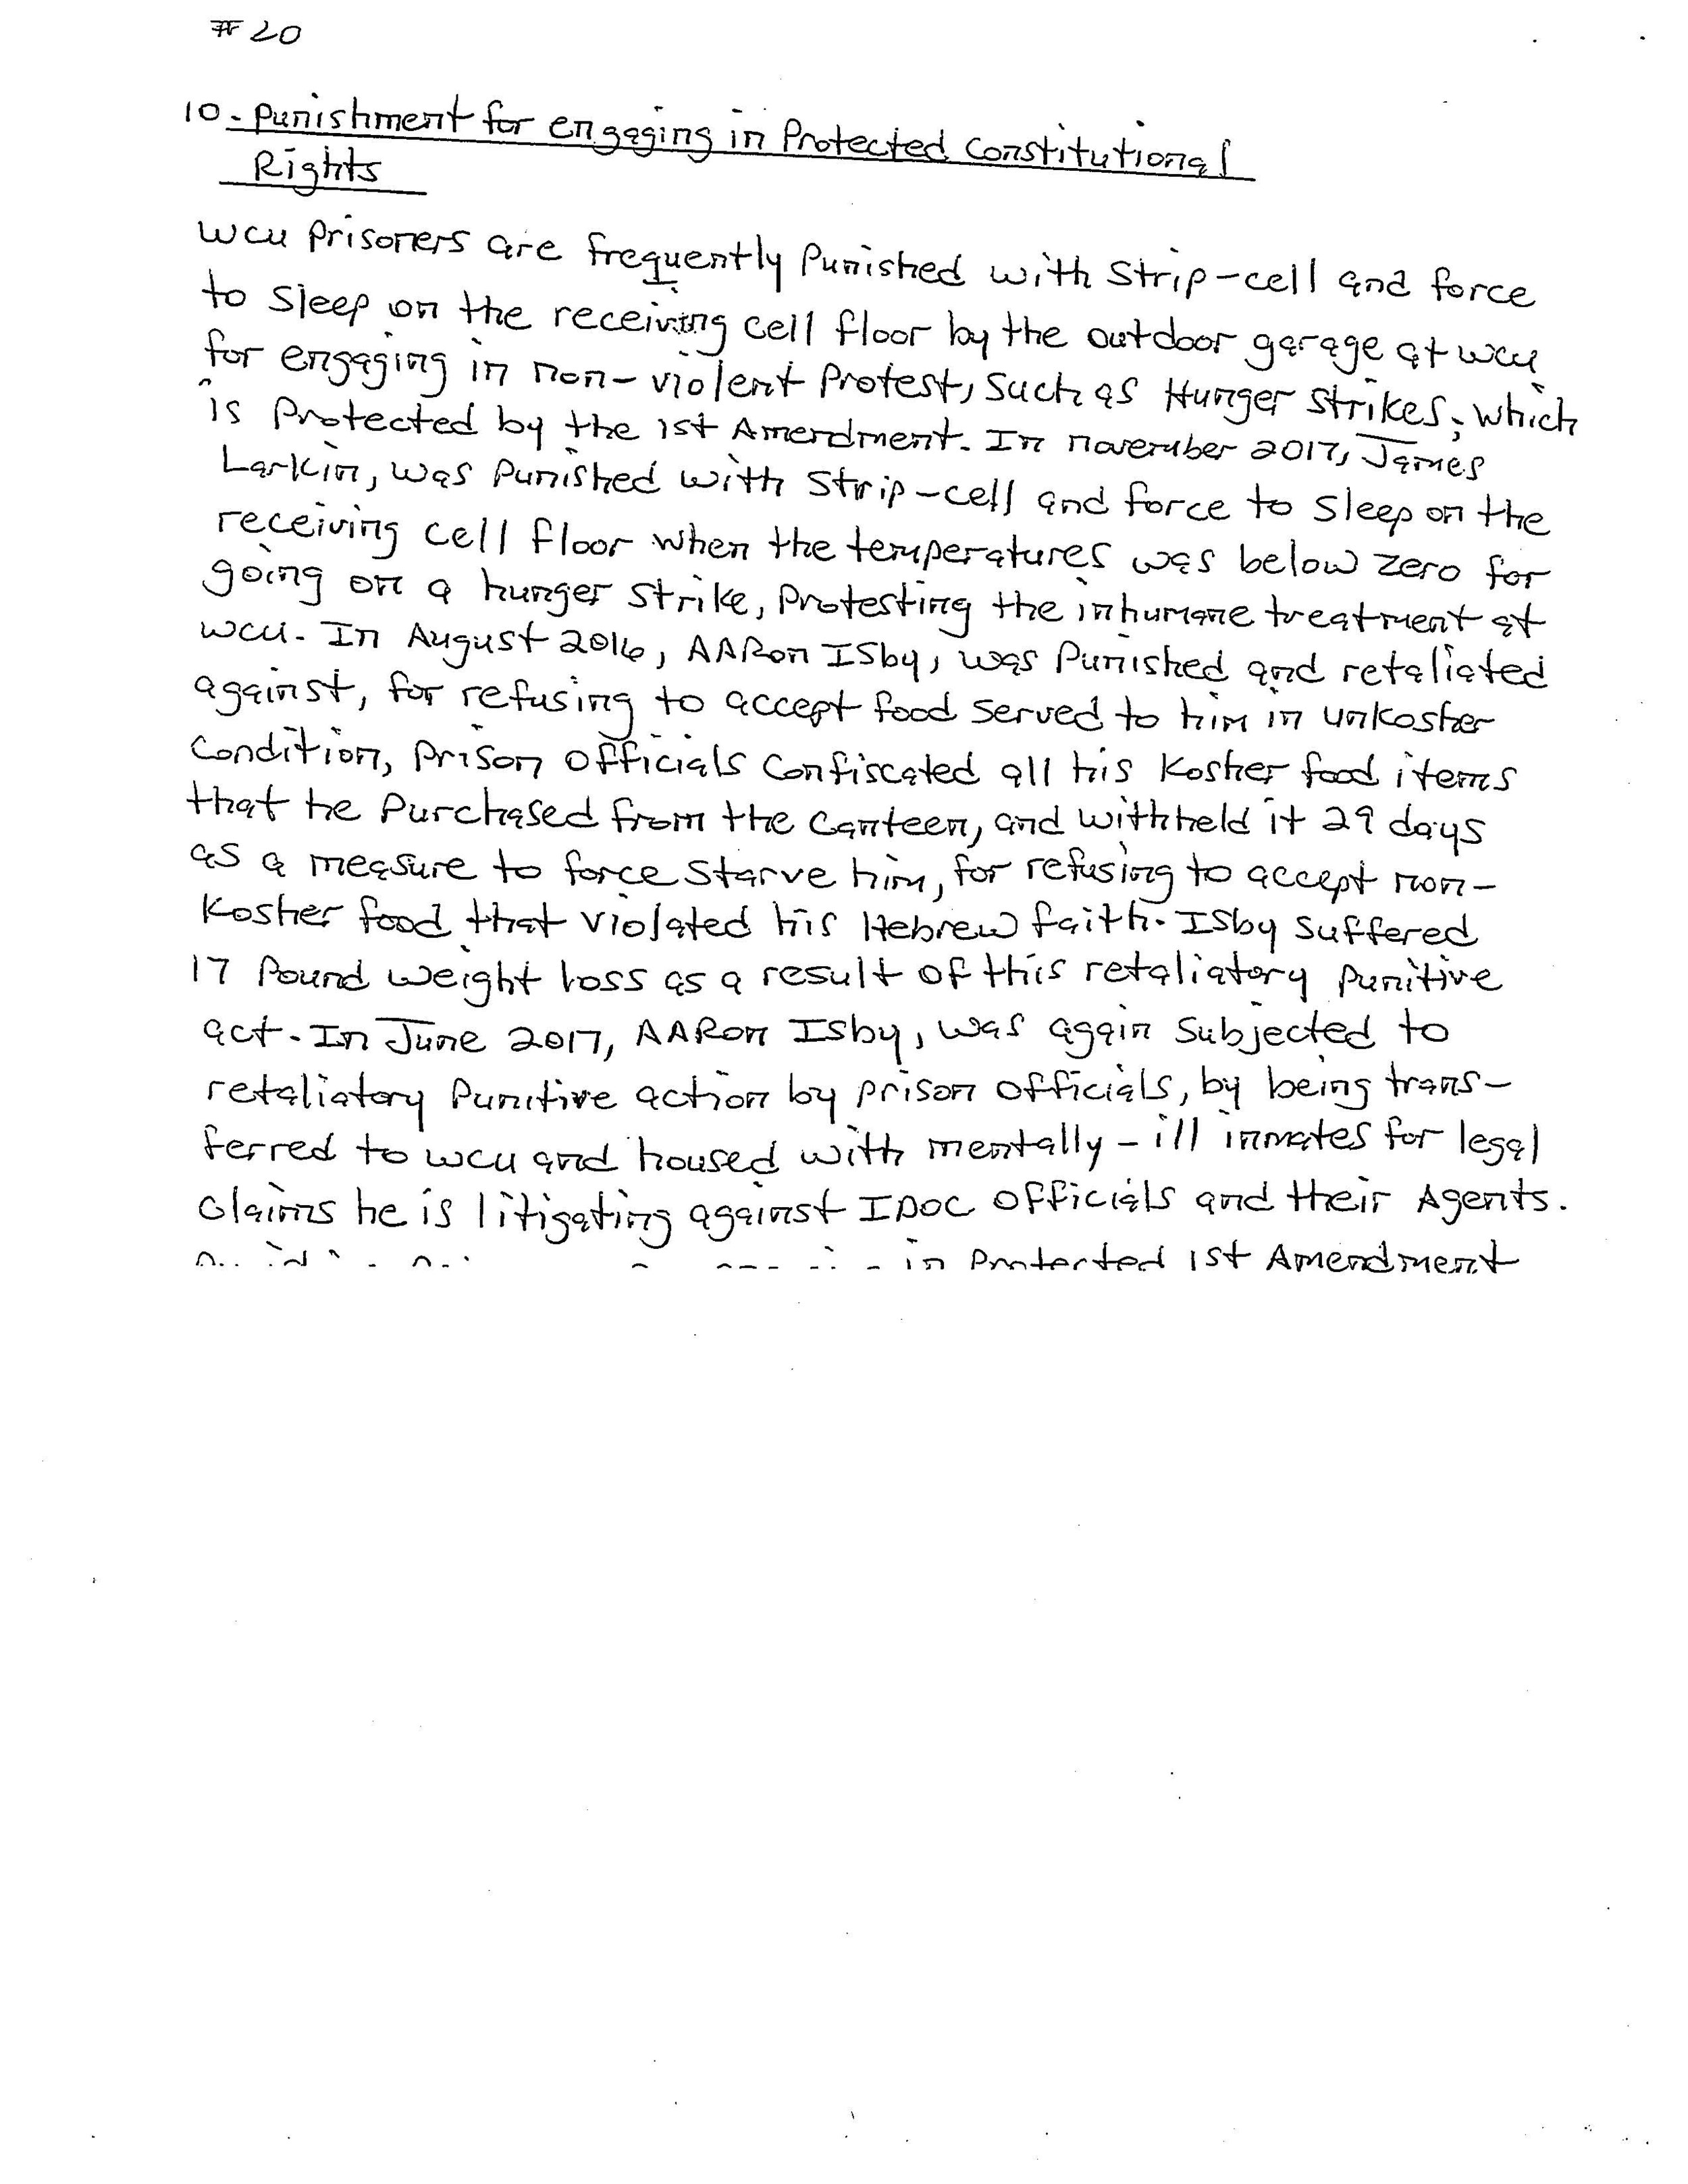 #20
10- Punishment for engaging in Protected Constitutional
Rights
WCU Prisoners are frequently Punished with Strip-cell and force
to Sleep on the receiving cell floor by the outdoor garage at WCU
for engaging in non-violent Protest, Such as Hunger Strikes, which
is Protected by the 1st Amendment. In November 2017, James
Larkin, was Punished with Strip-cell and force to Sleep on the
receiving cell floor when the temperatures was below zero for
going on a hunger Strike, Protesting the inhumane treatment at
WCU. In August 2016, AARon ISby, was Punished and retaliated
against, for refusing to accept food Served to him in unkosher
Condition, Prison Officials Confiscated all his Kosher food items
that he Purchased from the Canteen, and withheld it 29 days
as a measure to force Starve him, for refusing to accept non-
Kosher food that violated his Hebrew faith. ISby Suffered
17 Pound weight loss as a result of this retaliatory Punitive
act. In June 2017, AARon ISby, was again Subjected to
retaliatory Punitive action by prison Officials, by being trans-
ferred to WCU and housed with mentally-ill inmates for legal
Claims he is litigating against IDOC Officials and their Agents.
in Protected 1st Amendment